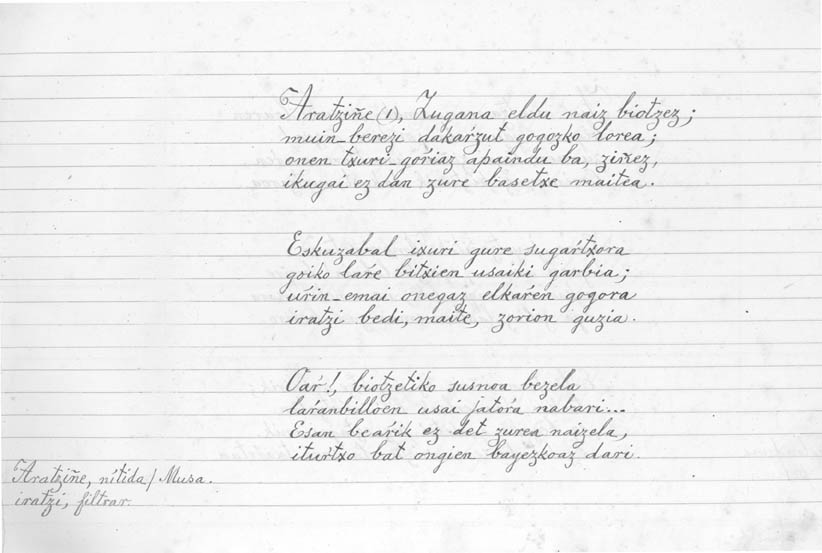 Aratziñe (1), Zugana eldu naiz biotzez;
muin-berezi dakaŕzut gogozko lorea;
onen txuri-goŕiaz apaindu ba, ziñez,
ikugai ez dan zure basetxe maitea.
Eskuzabal ixuri gure sugaŕtxora
goiko laŕe bitxien usaiki garbia;
uŕin-emai onegaz elkaŕen gogora
iratzi bedi, maite, zorion guzia.
Oaŕ!, biotzetiko susnoa bezela
laŕanbilloen usai jatoŕa nabari...
Esan beaŕik ez det zurea naizela,
ituŕtxo bat ongien bayezkoaz dari.
Aratziñe, nítida / Musa.
iratzi, filtrar.